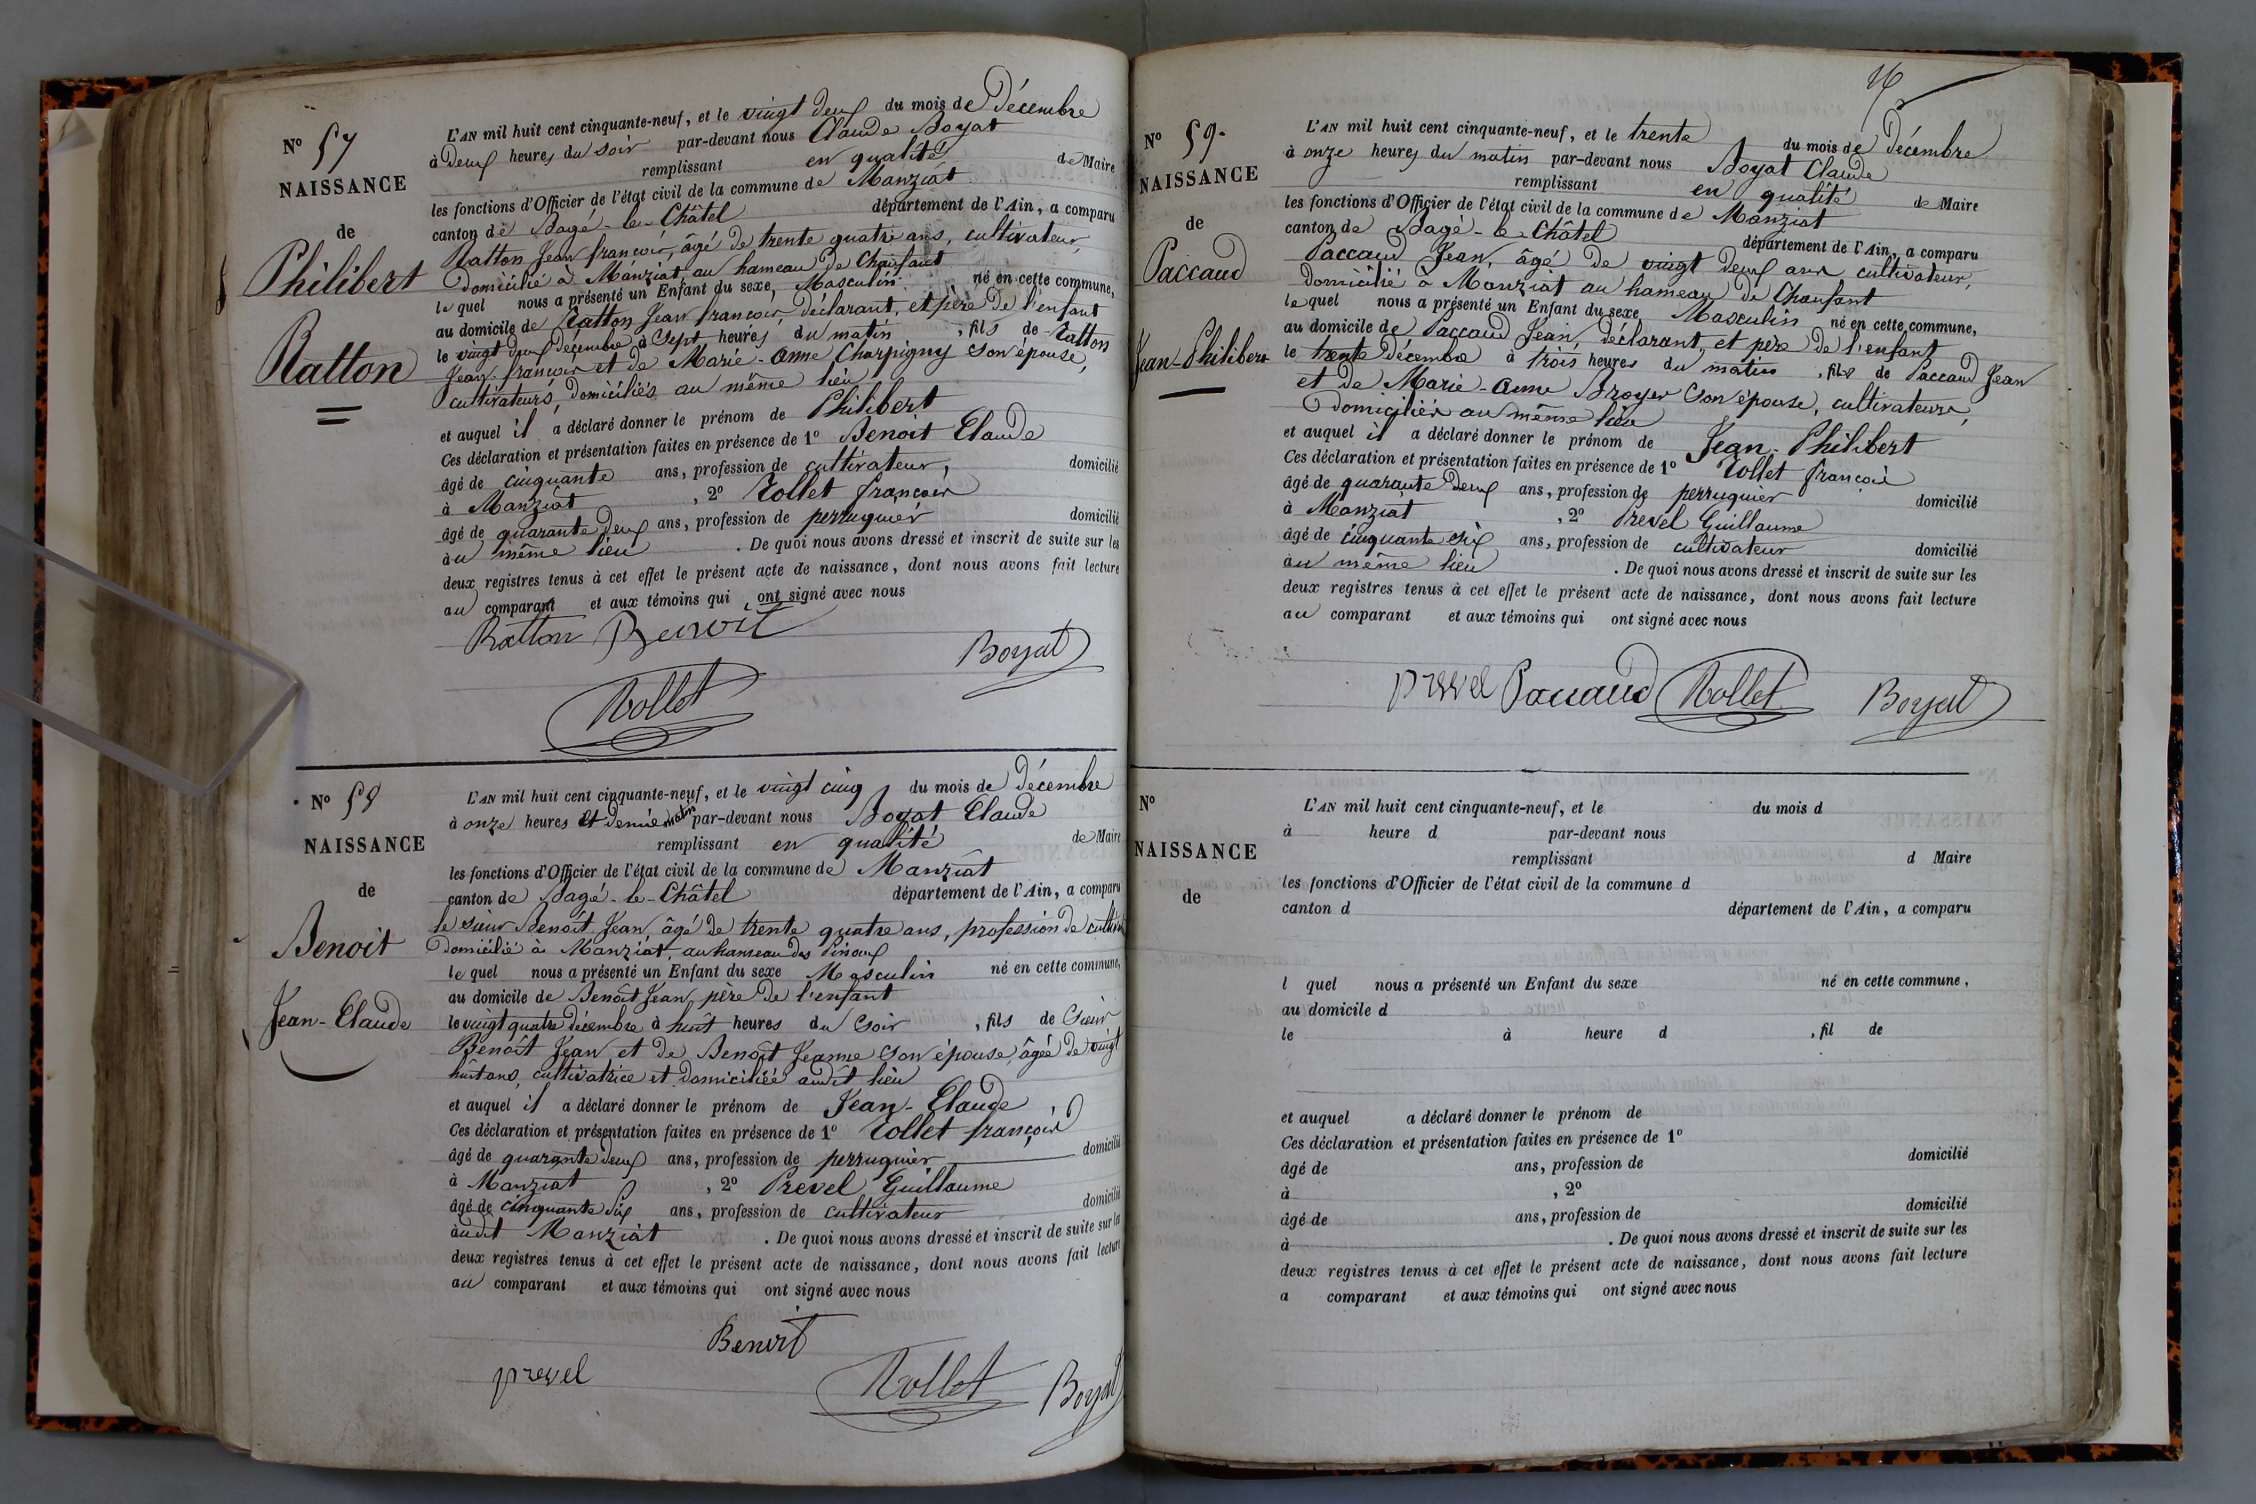 N° 57
NAISSANCE
de
Philibert
Ratton
L'AN mil huit cent cinquante-neuf, et le vingt deux du mois de Décembre
à deux heures du soir par-devant nous Claude Boyat
remplissant en qualité de Maire
les fonctions d'Officier de l'état civil de la commune de Manziat
canton de Bagé-le-Châtel département de l'Ain, a comparu
Ratton Jean françois, âgé de trente quatre ans, cultivateur,
domicilié à Manziat, au hameau de Chanfant
le quel nous a présenté un Enfant du sexe, Masculin né en cette commune,
au domicile de Ratton Jean françois, déclarant, et père de l'enfant
le vingt deux décembre à sept heures du matin, fils de Ratton
Jean françois et de Marie-Anne Charpigny son épouse,
cultivateurs, domiciliés au même lieu
et auquel il a déclaré donner le prénom de Philibert
Ces déclaration et présentation faites en présence de 1° Benoit Claude
âgé de cinquante ans, profession de cultivateur, domicilié
à Manziat, 2° Rollet françois
âgé de quarante deux ans, profession de perruquier domicilié
au même lieu. De quoi nous avons dressé et inscrit de suite sur les
deux registres tenus à cet effet le présent acte de naissance, dont nous avons fait lecture
au comparant et aux témoins qui ont signé avec nous
Ratton Benoit
Boyat
Rollet
N° 58
NAISSANCE
de
Benoit
Jean-Claude
L'AN mil huit cent cinquante-neuf, et le vingt cinq du mois de Décembre
à onze heures et demie matin par-devant nous Boyat Claude
remplissant en qualité de Maire
les fonctions d'Officier de l'état civil de la commune de Manziat
canton de Bagé-le-Châtel département de l'Ain, a comparu
le sieur Benoît Jean, âgé de trente quatre ans, profession de
domicilié à Manziat, au hameau des Pinoux
le quel nous a présenté un Enfant du sexe Masculin né en cette commune,
au domicile de Benoît Jean, père de l'enfant
le vingt quatre décembre à huit heures du soir, fils de sieur
Benoît Jean et de Benoît Jeanne son épouse, âgée de vingt
huit ans, cultivatrice et domiciliée audit lieu
et auquel il a déclaré donner le prénom de Jean-Claude,
Ces déclaration et présentation faites en présence de 1° Rollet françois
âgé de quarante deux ans, profession de perruquier domicilié
à Manziat, 2° Prevel Guillaume
âgé de cinquante six ans, profession de cultivateur domicilié
audit Manziat. De quoi nous avons dressé et inscrit de suite sur les
deux registres tenus à cet effet le présent acte de naissance, dont nous avons fait lecture
au comparant et aux témoins qui ont signé avec nous
Benoit
prevel Rollet Boyat
N° 59.
NAISSANCE
de
Paccaud
Jean-Philibert
L'AN mil huit cent cinquante-neuf, et le trente du mois de Décembre
à onze heures du matin par-devant nous Boyat Claude
remplissant en qualité de Maire
les fonctions d'Officier de l'état civil de la commune de Manziat
canton de Bagé-le-Châtel département de l'Ain, a comparu
Paccaud Jean, âgé de vingt deux ans cultivateur,
domicilié à Manziat au hameau de Chanfant
le quel nous a présenté un Enfant du sexe Masculin né en cette commune,
au domicile de Paccaud Jean, déclarant, et père de l'enfant
le trente décembre à trois heures du matin, fils de Paccaud Jean
et de Marie-Anne Broyer son épouse, cultivateurs,
domiciliés au même lieu
et auquel il a déclaré donner le prénom de Jean-Philibert
Ces déclaration et présentation faites en présence de 1° Rollet françois
âgé de quarante deux ans, profession de perruquier domicilié
à Manziat, 2° Prevel Guillaume
âgé de cinquante six ans, profession de cultivateur domicilié
au même lieu. De quoi nous avons dressé et inscrit de suite sur les
deux registres tenus à cet effet le présent acte de naissance, dont nous avons fait lecture
au comparant et aux témoins qui ont signé avec nous
prevel Paccaud Rollet Boyat
N°
NAISSANCE
de
L'AN mil huit cent cinquante-neuf, et le du mois d
à heure d par-devant nous
remplissant d Maire
les fonctions d'Officier de l'état civil de la commune d
canton d département de l'Ain, a comparu
l quel nous a présenté un Enfant du sexe né en cette commune,
au domicile d
le à heure d , fil de
et auquel a déclaré donner le prénom de
Ces déclaration et présentation faites en présence de 1°
âgé de ans, profession de domicilié
à , 2°
âgé de ans, profession de domicilié
à . De quoi nous avons dressé et inscrit de suite sur les
deux registres tenus à cet effet le présent acte de naissance, dont nous avons fait lecture
a comparant et aux témoins qui ont signé avec nous